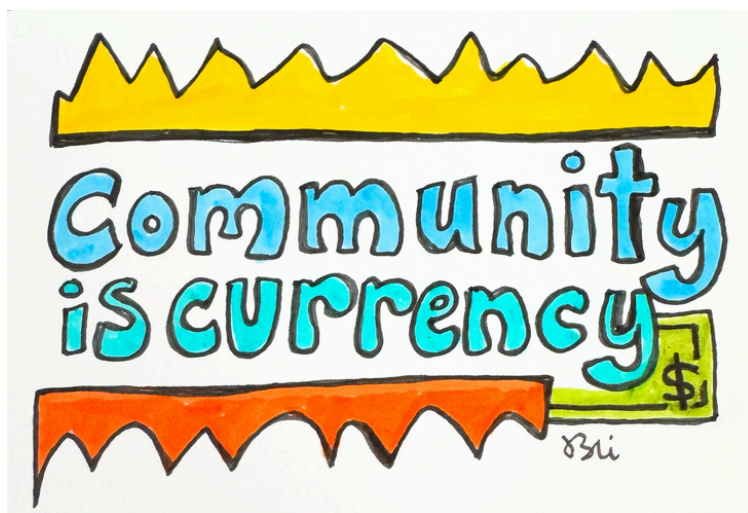 Community
is currency
$
Bri